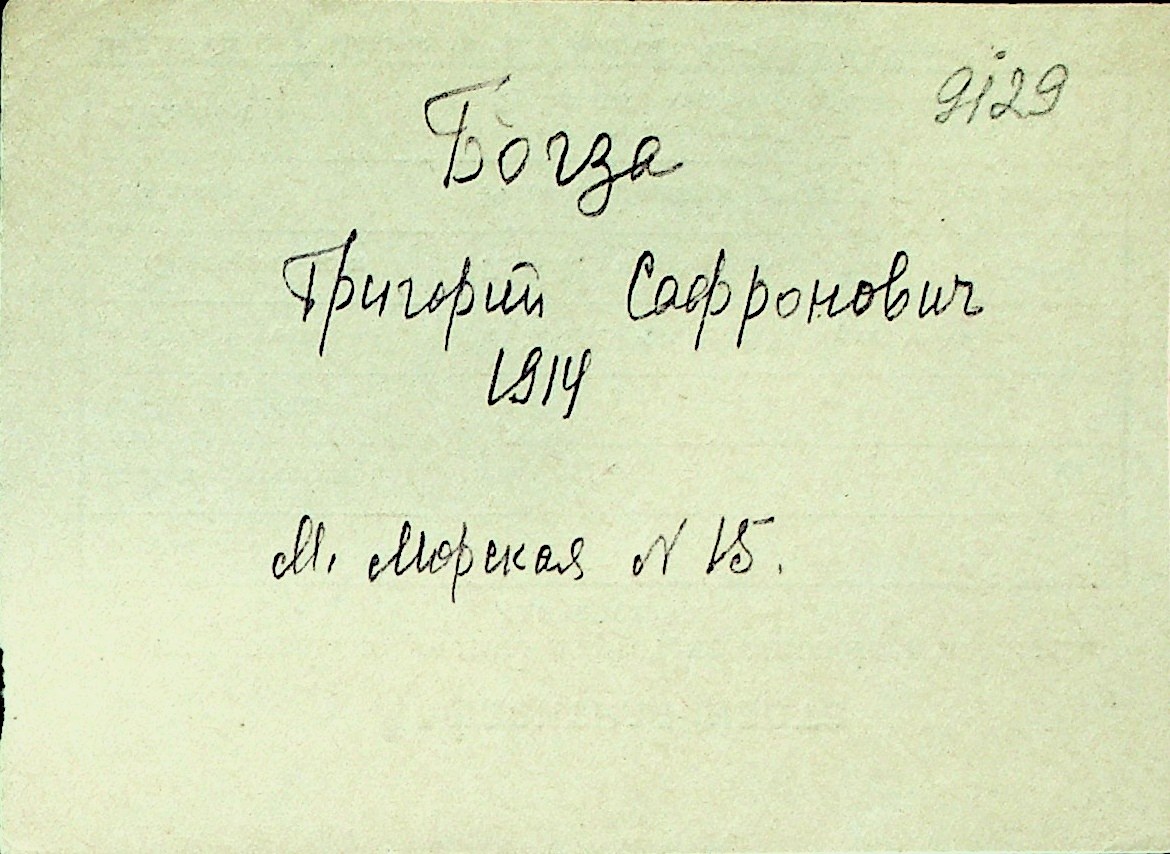 9129
Богза
Григорий Сафронович
1914
М. Морская N 15.